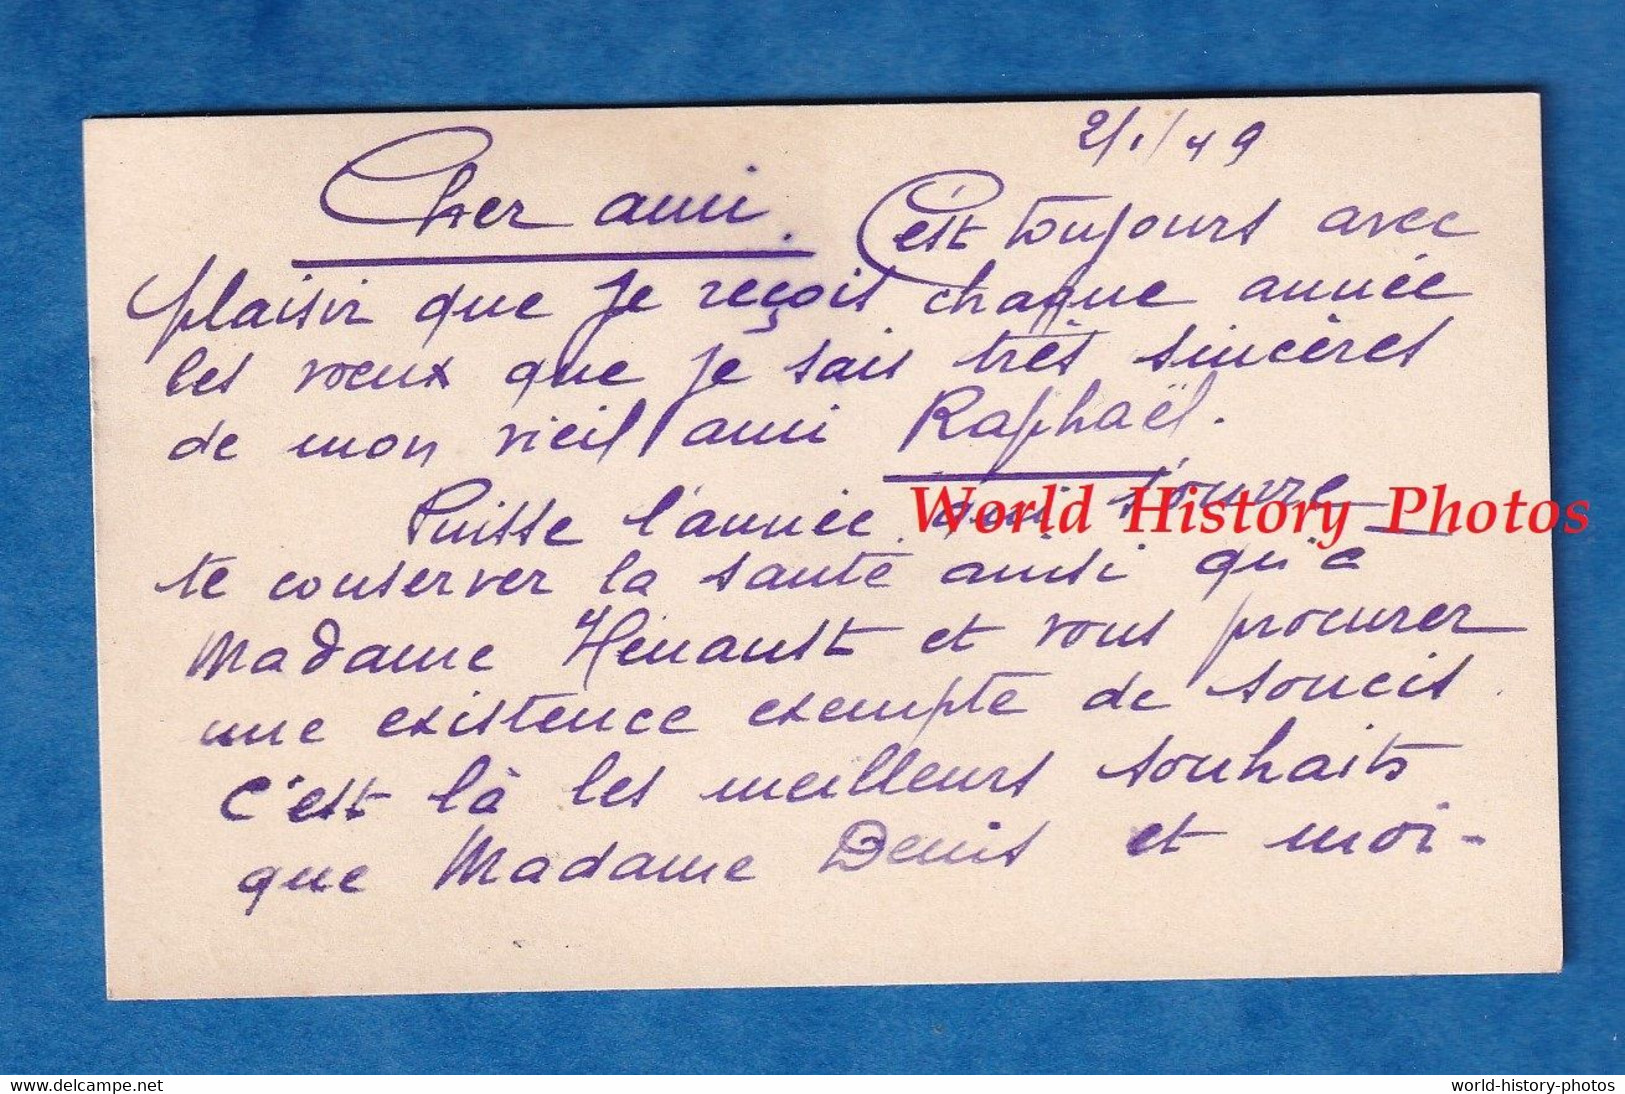 2/1/49
Cher ami. C'est toujours avec
plaisir que je reçois chaque année
les voeux que je sais très sincères
de mon vieil ami Raphaël.
Puisse l'année qui s'ouvre
World History Photos
te conserver la santé ainsi qu'à
Madame Hénault et vous procurer
une existence exempte de soucis.
C'est là les meilleurs souhaits
que Madame Denis et moi-
delcampe.net
world-history-photos